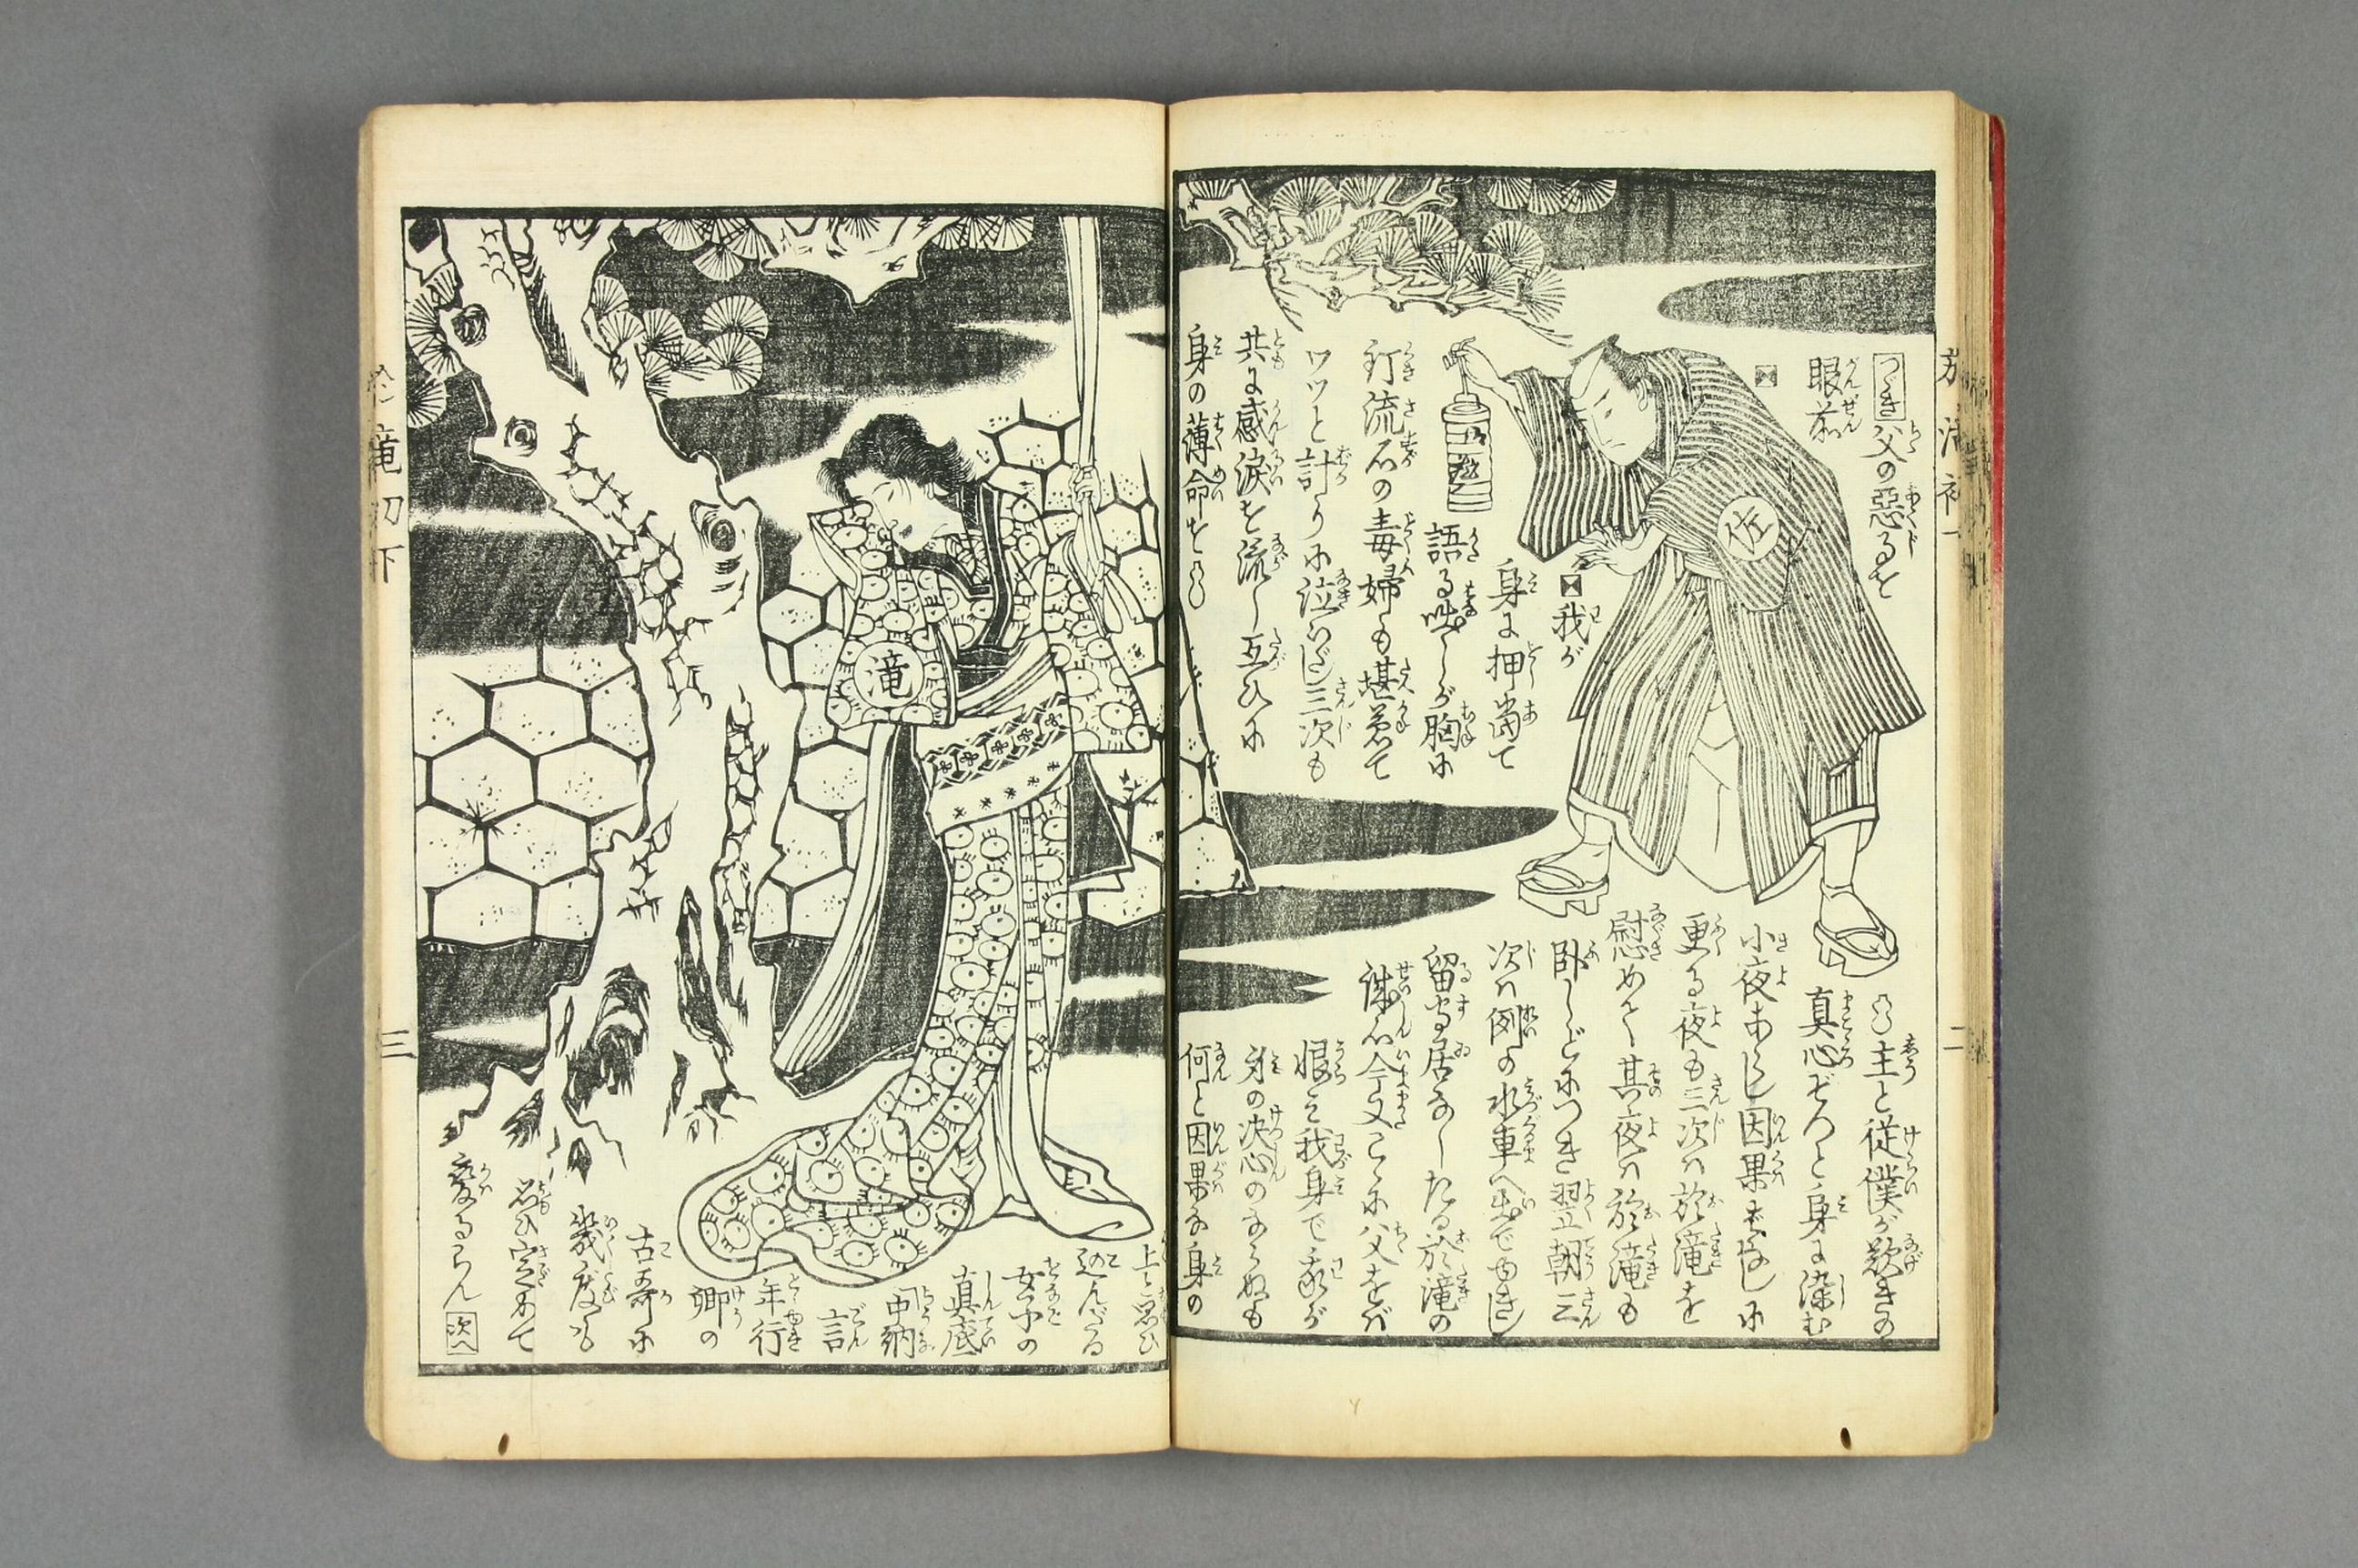 つゞき父の惡事を
眼前
我が
身に押當て
語る咄しが胸に
釘流石の毒婦も堪兼て
ワツと計りに泣いだし三次も
共に感涙を流し互ひに
身の薄命を
主と従僕が歎きの
真心ぞつと身に染む
小夜あらし因果ばなしに
更る夜も三次ハ於滝を
慰めて其夜ハ於滝も
臥しどにつき翌朝三
次ハ例の水車へ出でゆきし
留守居なしたる於滝の
誠心今又こゝに父をバ
恨ミ我身で我が
身の决心のならぬも
何と因果な身の
上と思ひ
込んだる
女子の
真底
中納
言
年行
卿の
古哥に
幾度か
思ひ定めて
変るらん
次へ
佐
滝
二
滝
下
三